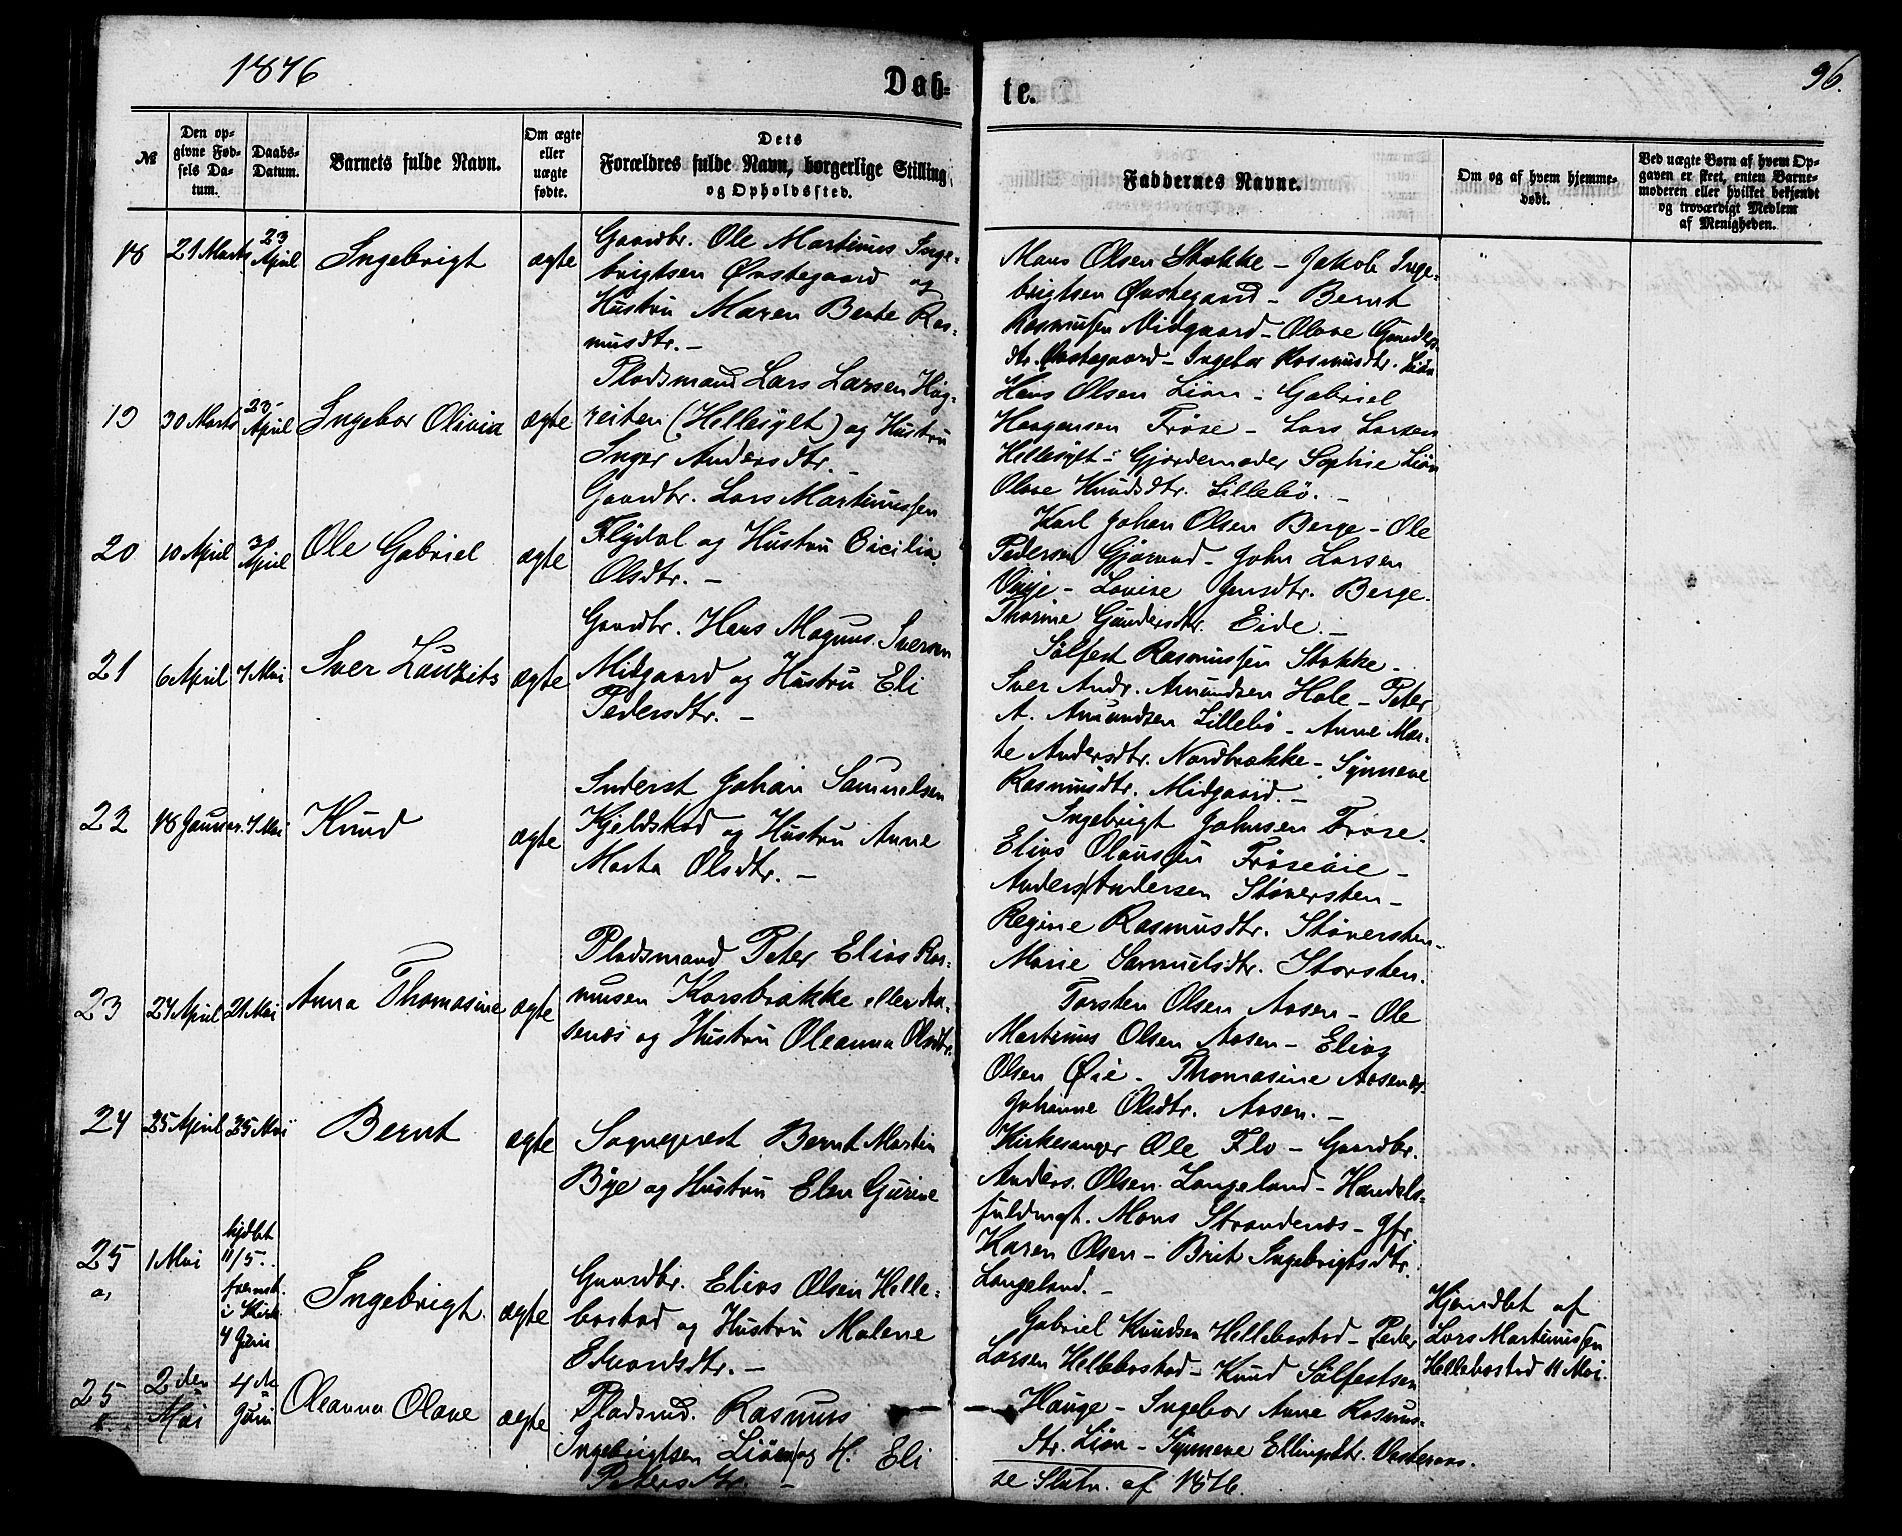 1876
Dab-
te.
96.
№
Den op-
givne Fød-
sels Da-
tum.
Daabs-
Datum.
Barnets fulde Navn.
Om ægte
eller
uægte
fødte.
Dets
Forældres fulde Navn, borgerlige Stilling
og Opholdssted.
Faddernes Navne.
Om og af hvem hjemme-
døbt.
Ved uægte Børn af hvem Op-
gaven er skeet, enten Barne-
moderen eller hvilket bekjendt
og troværdigt Medlem
af Menigheden.
18
21 Marts
23
April
Ingebrigt
ægte
Gaardbr. Ole Martinus Inge-
brigtsen Øvstegaard og
Hustru Maren Bente Ras-
musdtr. -
Mons Olsen Stokke - Jakob Inge-
brigtsen Øvstegaard - Bernt
Rasmussen Midgaard - Olave Gunders-
dtr. Øvstegaard - Ingebor Rasmusdtr. Liøn
19
30 Marts
23
April
Ingebor Olivia
ægte
Pladsmand Lars Larsen Høg-
reiten (Hellesylt) og Hustru
Inger Andersdtr. -
Hans Olsen Liøn - Gabriel
Haagensen Frøse - Lars Larsen
Hellesylt - Gjordemoder Sophie Liøn
Olave Knudsdtr. Lillebø. -
20
10 April
30
April
Ole Gabriel
ægte
Gaardbr. Lars Martinussen
Flydal og Hustru Cicilia
Olsdtr. -
Karl Johan Olsen Berge - Ole
Pedersen Gjørvad - John Larsen
- Lovise Jensdtr. Berge -
Thorine Gundersdtr. Eide. -
21
6 April
7 Mai
Iver Lauzits
ægte
Gaardbr. Hans Magnus Iversen
Midgaard og Hustru Eli
Pedersdtr. -
Sølfest Rasmussen Stokke -
Iver Andr. Amundsen Hole - Peter
A. Amundsen Lillebø - Anne Mar-
te Andersdtr. Nordbrække - Synneve
Rasmusdtr. Midgaard. -
22
18 Januar
7 Mai
Knud
ægte
Inderst Johan Samuelsen
Kjeldstad og Hustru Anne
Marta Olsdtr. -
Ingebrigt Johnsen Frøse -
Elias Olaussen Frøseøie -
Anders Andersen Støversten -
Regine Rasmusdtr. Støversten -
Marie Samuelsdtr. Storsten.
23
24 April
21 Mai
Anna Thomasine
ægte
Pladsmand Peter Elias Ras-
musen Korsbrække eller Aa-
senæs og Hustru Oleanna Olsdtr.
Torsten Olsen Aasen - Ole
Martinus Olsen Aasen - Elias
Olsen Øie - Thomasine Aasenæs
Johanne Olsdtr. Aasen. -
24
25 April
25 Mai
Bernt
ægte
Sognepræst Bernt Martin
Bye og Hustru Elen Gurine
Kirkesanger Ole Flo - Gaardbr.
Anders Olsen Langeland - Handels-
fuldmgt. Mons Strandenæs - Jfr.
Karen Olsen - Brit Ingebrigtsdtr.
Langeland. -
25
a,
1 Mai
hjdbt
11/5.
fremst.
i Kirk
4 Juni
Ingebrigt
ægte
Gaardbr. Elias Olsen Helle-
bostad og Hustru Malene
Edvardsdtr. -
Gabriel Knudsen Hellebostad - Peder
Larsen Hellebostad - Knud Sølfestsen
Hjemdbt af
Lars Martinussen
Hellebostad 11 Mai.
25
2 den
Mai
4 de
Juni
Oleanna Olave
ægte
Pladsmd. Rasmus
Ingebrigtsen Liøn og H. Eli
Petersdtr. -
Hauge - Ingebor Anne Rasmus-
dtr. Liøn - Synneve Ellingsdtr.
se Slutn. af 1876.